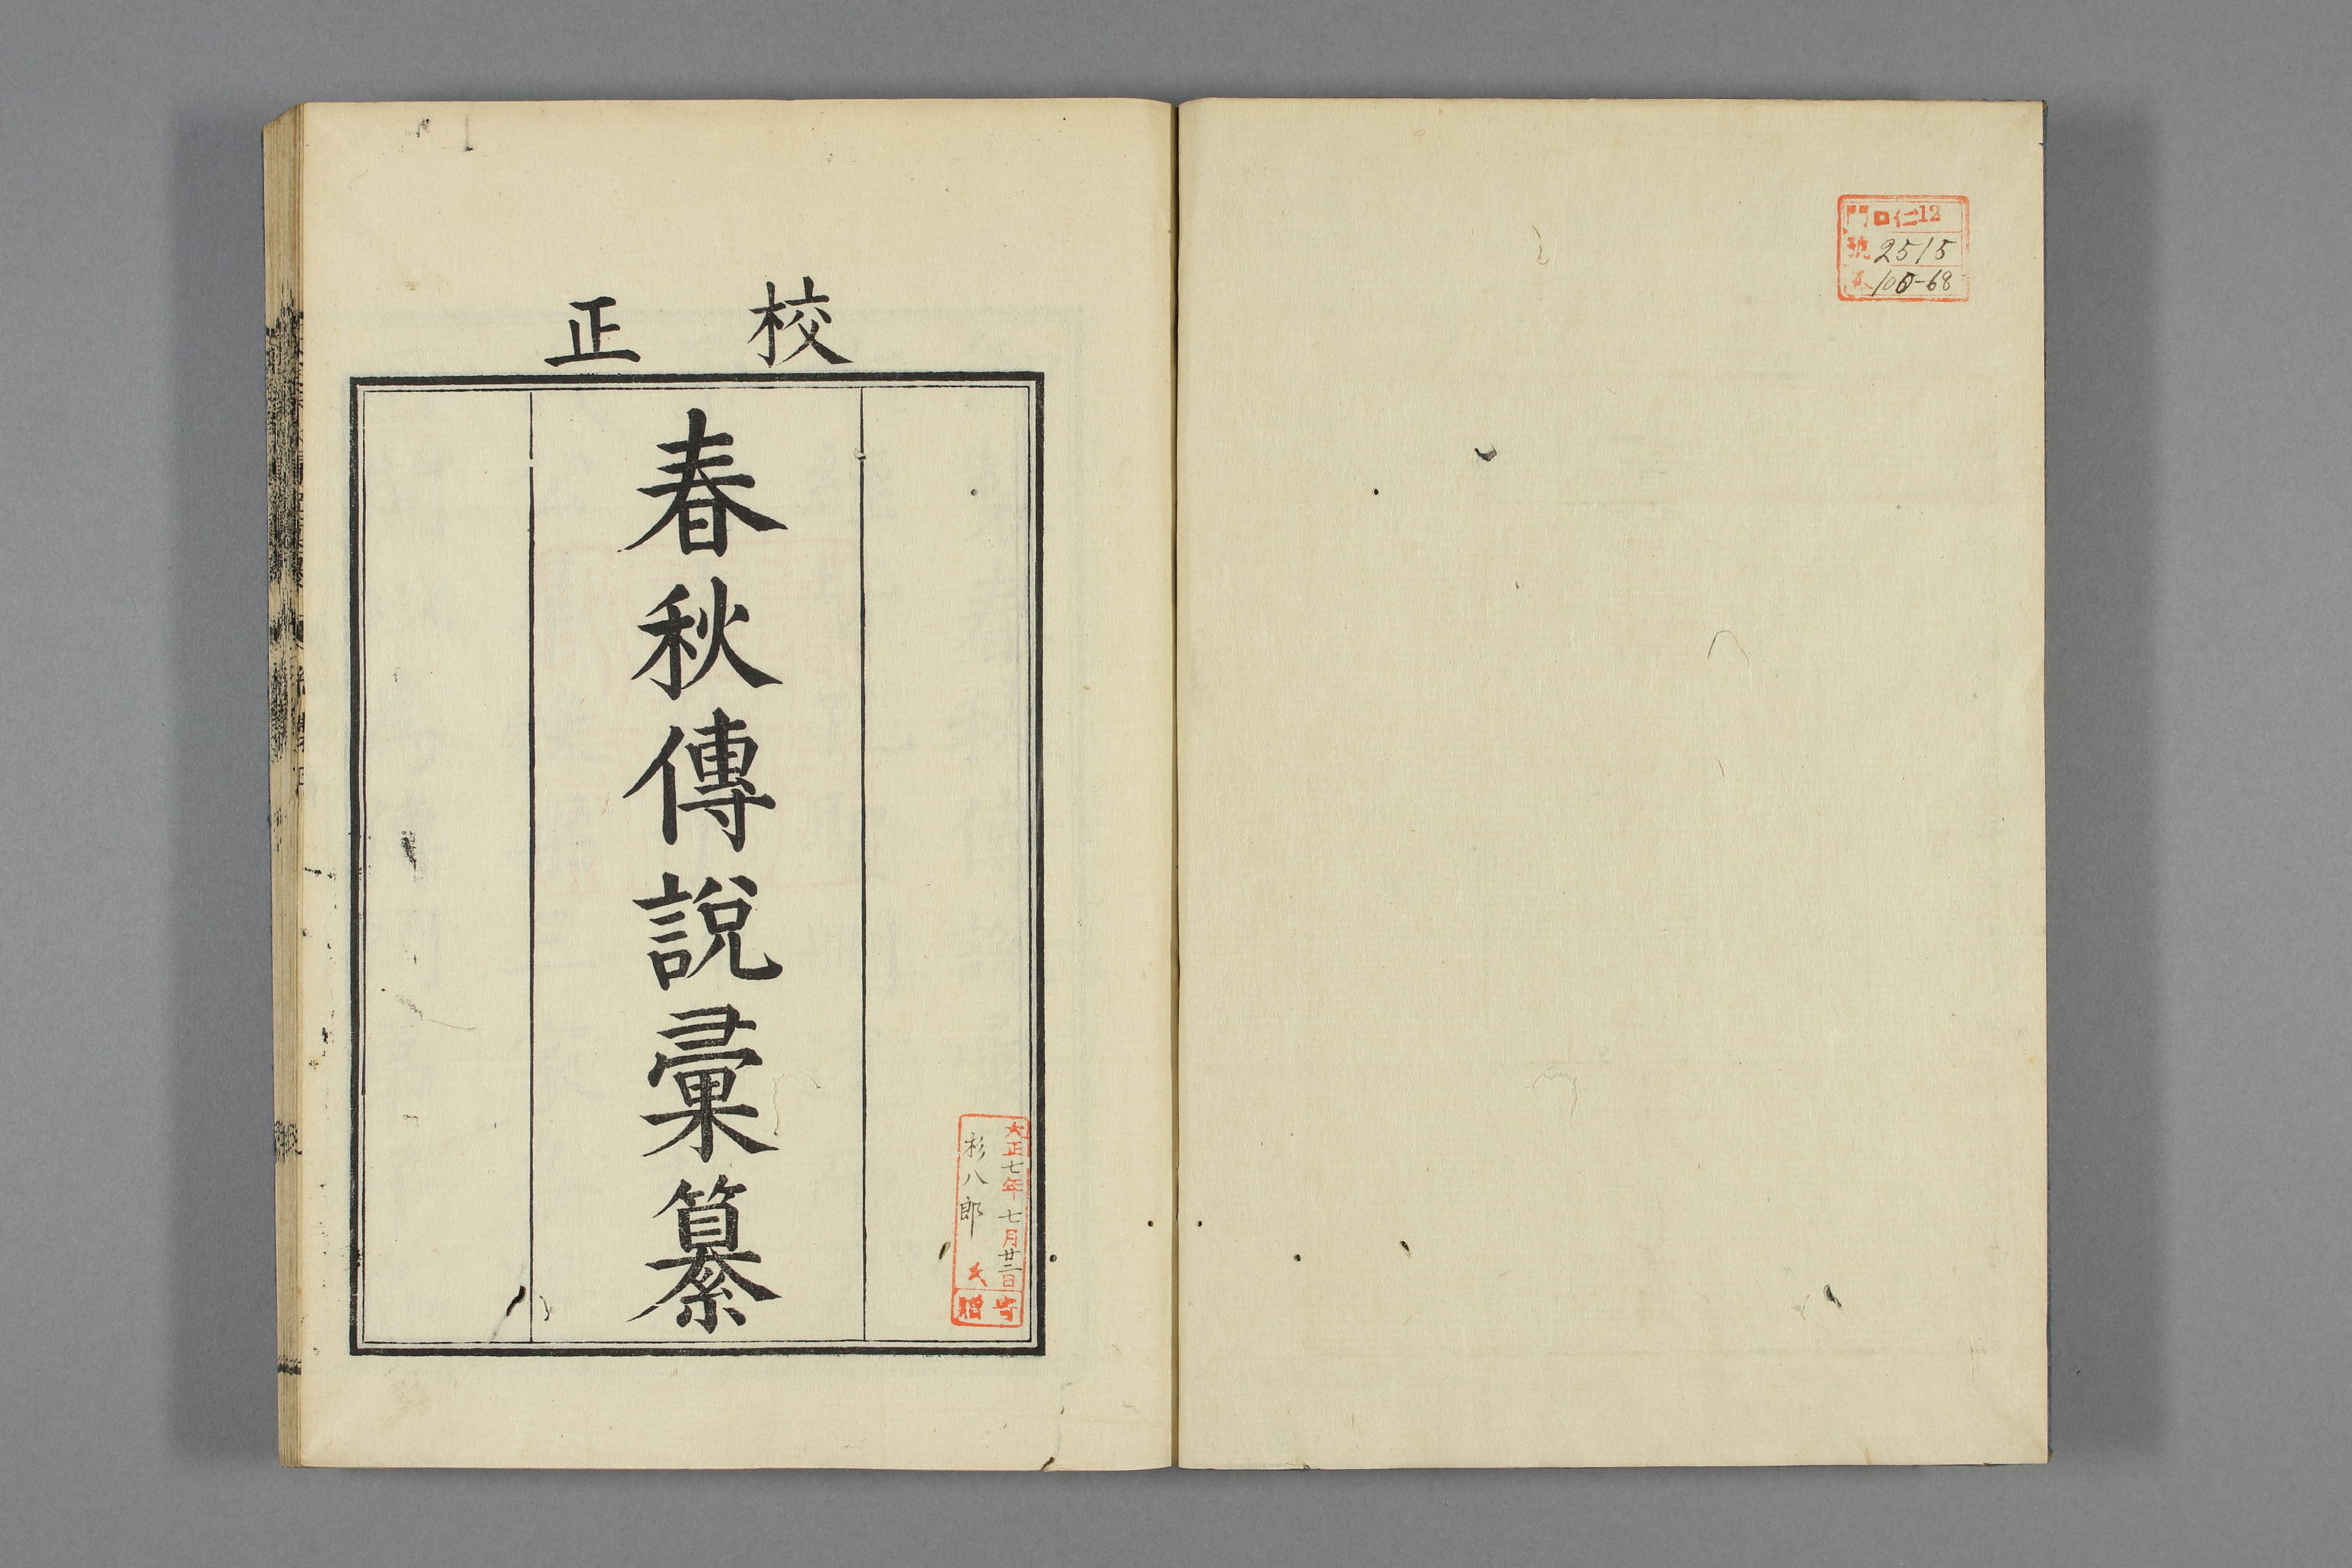 門 ロ仁12
號 2515
卷 100-68
校正
春秋傳說彙纂
大正七年七月廿二日
杉八郎氏
寄贈